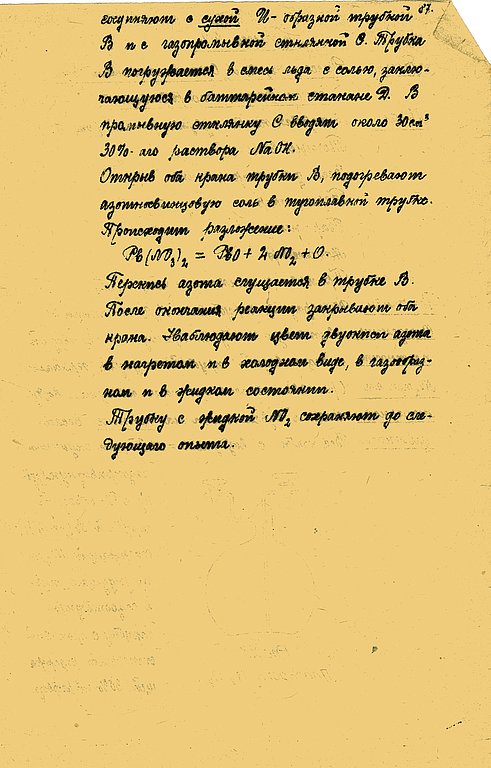 87.
соединяют с сухой U-образной трубкой
В и с газопромывной стклянкой С. Трубка
В погружается в смесь льда с солью, заклю-
чающуюся в баттарейном стакане Д. В
промывную стклянку С вводят около 30 см³
30%-аго раствора NaOH.
Открыв оба крана трубки В, подогревают
азотносвинцовую соль в тугоплавкой трубке.
Происходит разложение:
Pb(NO₃)₂ = PbO + 2 NO₂ + O.
Перекись азота сгущается в трубке В.
После окончания реакции закрывают оба
крана. Наблюдают цвет двуокиси азота
в нагретом и в холодном виде, в газообраз-
ном и в жидком состоянии.
Трубку с жидкой NO₂ сохраняют до сле-
дующего опыта.